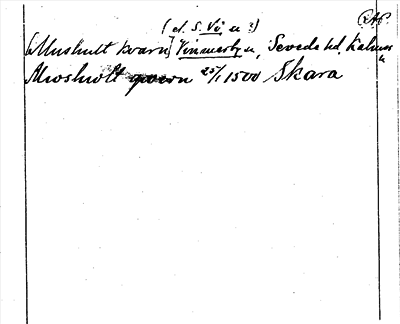 (el. S. Vi u ?)
[Mushult kvarn] Vimmerby u, Sevede hd, Kalmar
Moshwlt qwern 25/1 1500 Skara